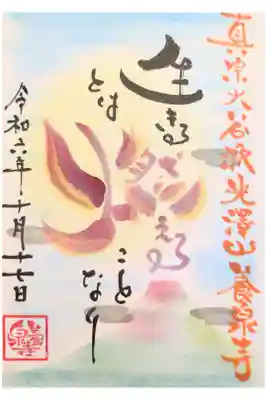 真宗大谷派光澤山養泉寺
生きる
とは
燃える
ことなり
令和六年十月十七日